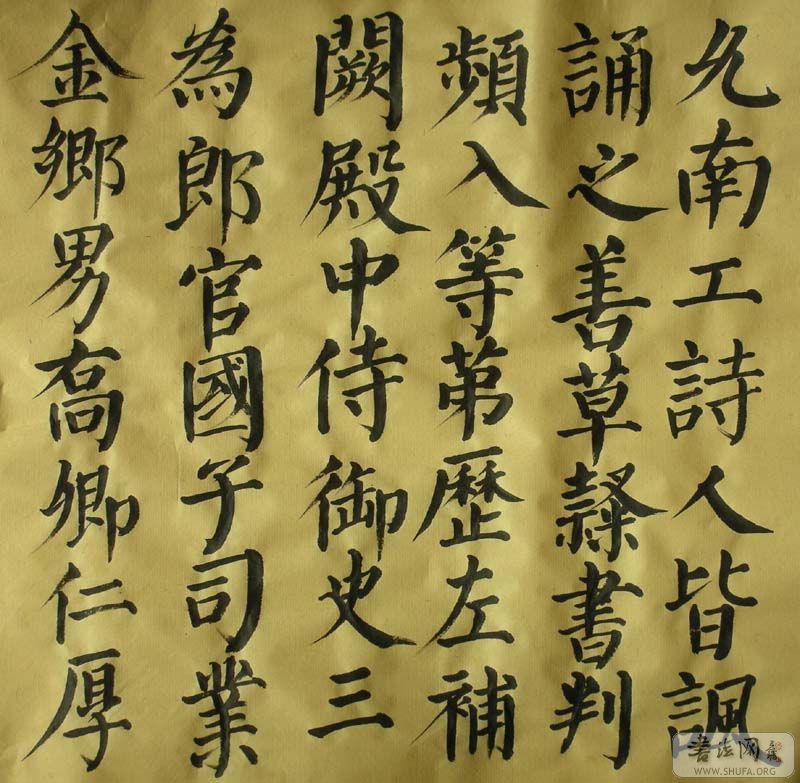 允南工詩人皆諷
誦之善草隸書判
頻入等第歷左補
闕殿中侍御史三
為郎官國子司業
金鄉男喬卿仁厚
書法网
WWW.SHUFA.ORG